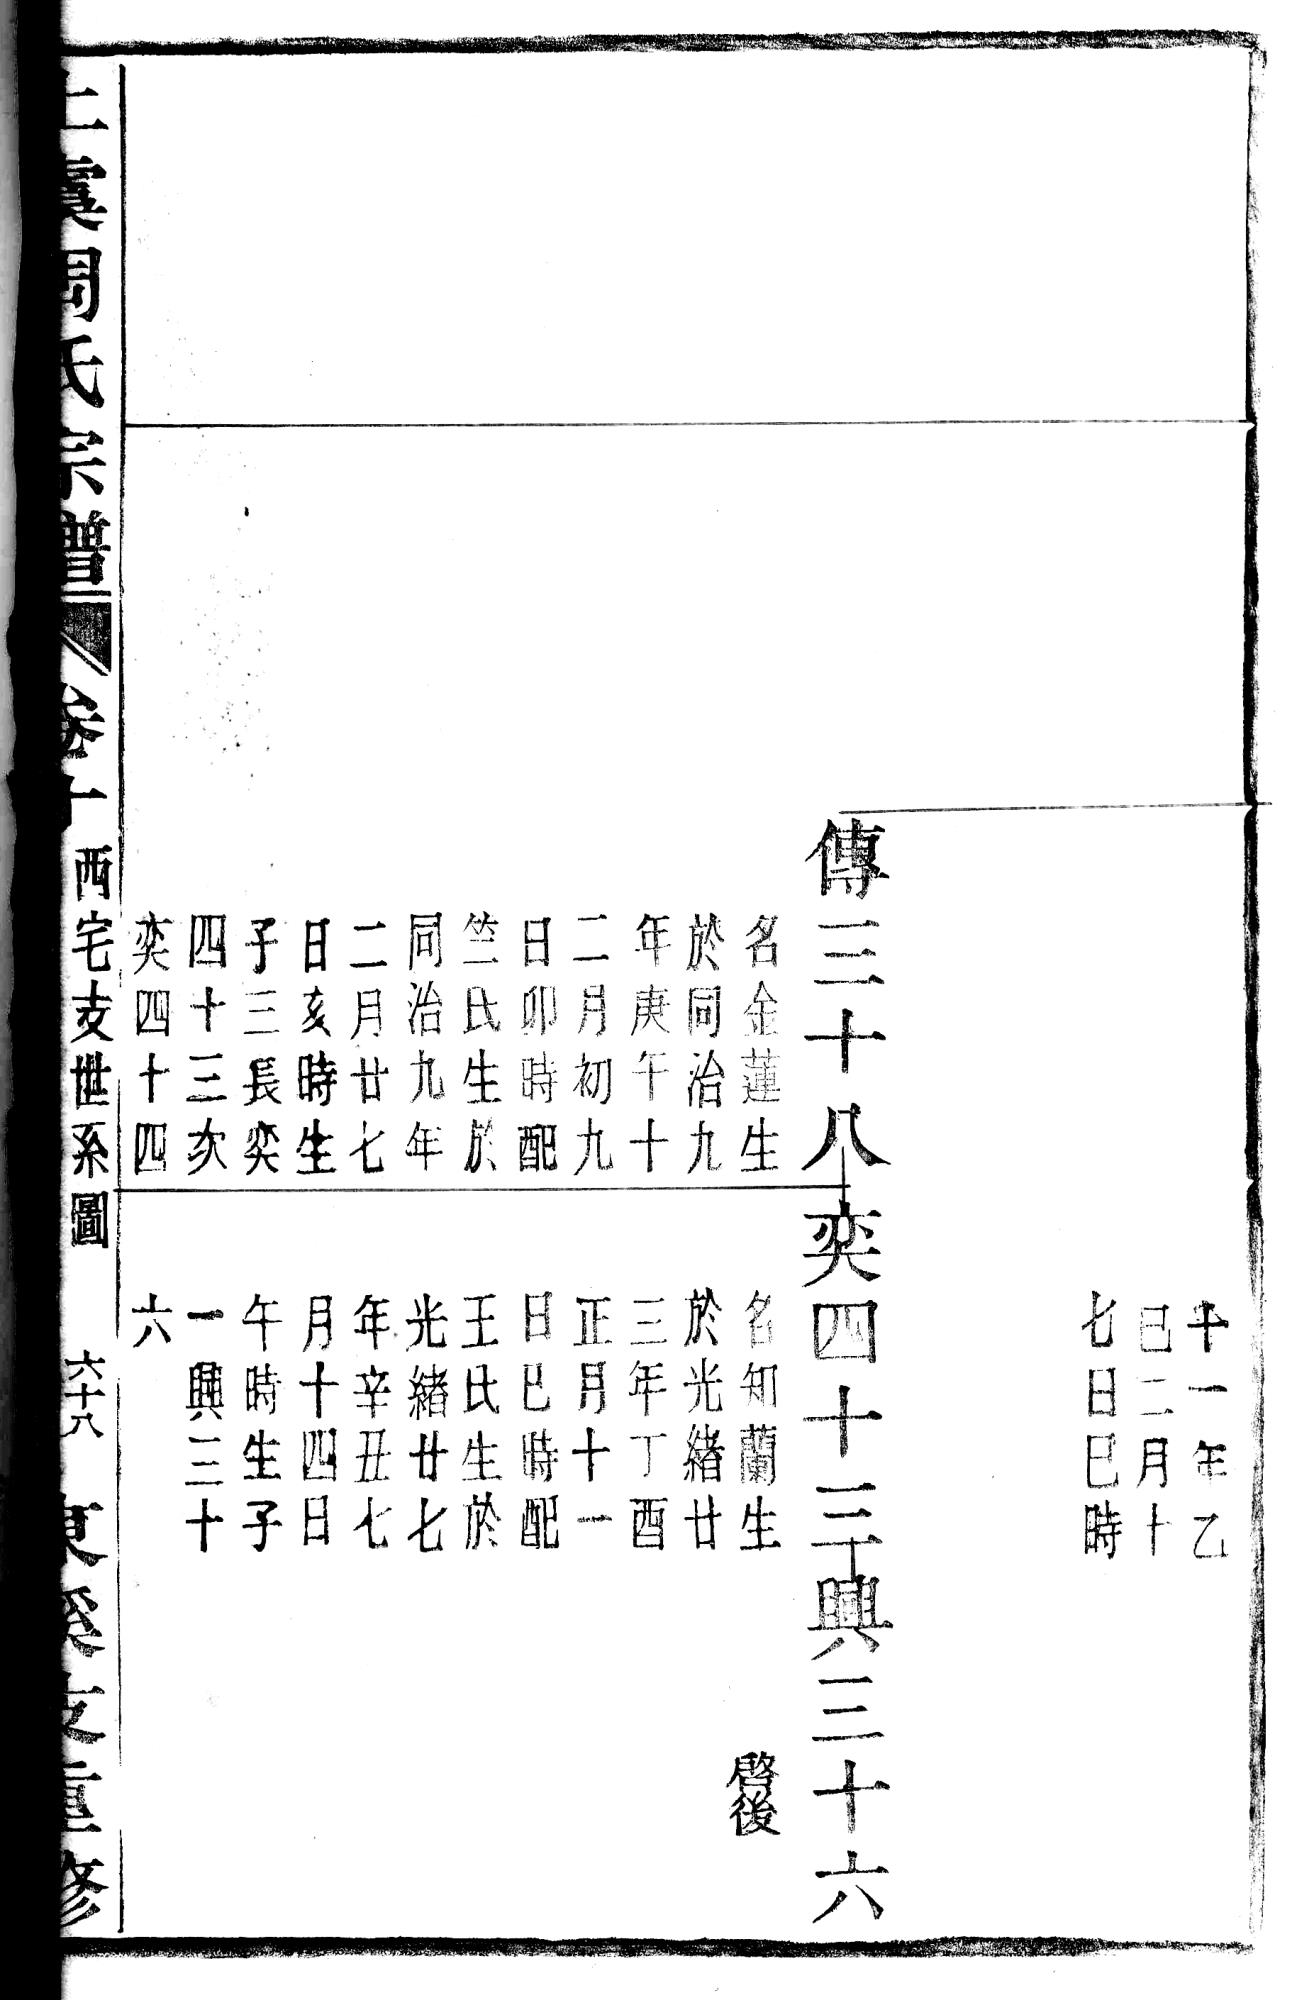 十一年乙
巳二月十
七日巳時
傳三十八
名金蓮生
於同治九
年庚午十
二月初九
日卯時配
竺氏生於
同治九年
二月廿七
日亥時生
子三長奕
四十三次
奕四十四
奕四十三
名知蘭生
於光緒廿
三年丁酉
正月十一
日巳時配
王氏生於
光緒廿七
年辛丑七
月十四日
午時生子
一興三十
六
興三十六
啓後
上虞周氏宗譜
卷十
西宅支世系圖
六十八
支重修